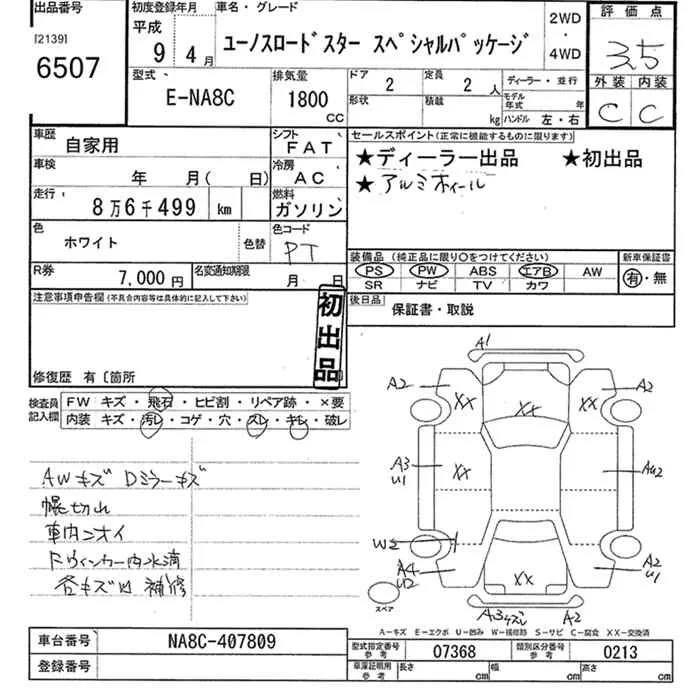 出品番号
[2139]
6507
初度登録年月
平成
9 年 4 月
車名・グレード
ユーノスロードスター スペシャルパッケージ
2WD
・
4WD
評価点
3.5
外装 内装
C C
型式
E-NA8C
排気量
1800
CC
ドア
2
定員
2 人
形状
積載
kg
ディーラー・並行
モデル年式 年
ハンドル 左・右
車歴
自家用
シフト
FAT
車検
年 月( 日)
冷房
AC
走行
8万6千499 km
燃料
ガソリン
色
ホワイト
色替
色コード
PT
R券
7,000円
名変通知期限
月 日
セールスポイント(正常に機能するものに限ります)
★ディーラー出品 ★初出品
★アルミホイール
装備品 (純正品に限り○をつけてください)
PS PW ABS エアB AW
SR ナビ TV カワ
新車保証書
有・無
後日品
保証書・取説
注意事項申告欄(不具合内容等は具体的に記入して下さい)
初出品
修復歴 有〔箇所
検査員記入欄
FW キズ・飛石・ヒビ割・リペア跡・×要
内装 キズ・汚レ・コゲ・穴・スレ・キレ・破レ
AWキズ Dミラーキズ
幌切れ
車内ニオイ
Fウィンカー内水滴
各キズ凹 補修
A1
A2 XX XX XX A2
A3
U1
XX
AU2
W2
A4
U2
XX
A2
U1
スペア
A3 ケズレ A2
A−キズ E−エクボ U−凹み W−補修跡 S−サビ C−腐食 XX−交換済
車台番号
NA8C-407809
登録番号
型式指定番号
参考
07368
類別区分番号
参考
0213
車庫証明用
参考
長さ cm
幅 cm
高さ cm